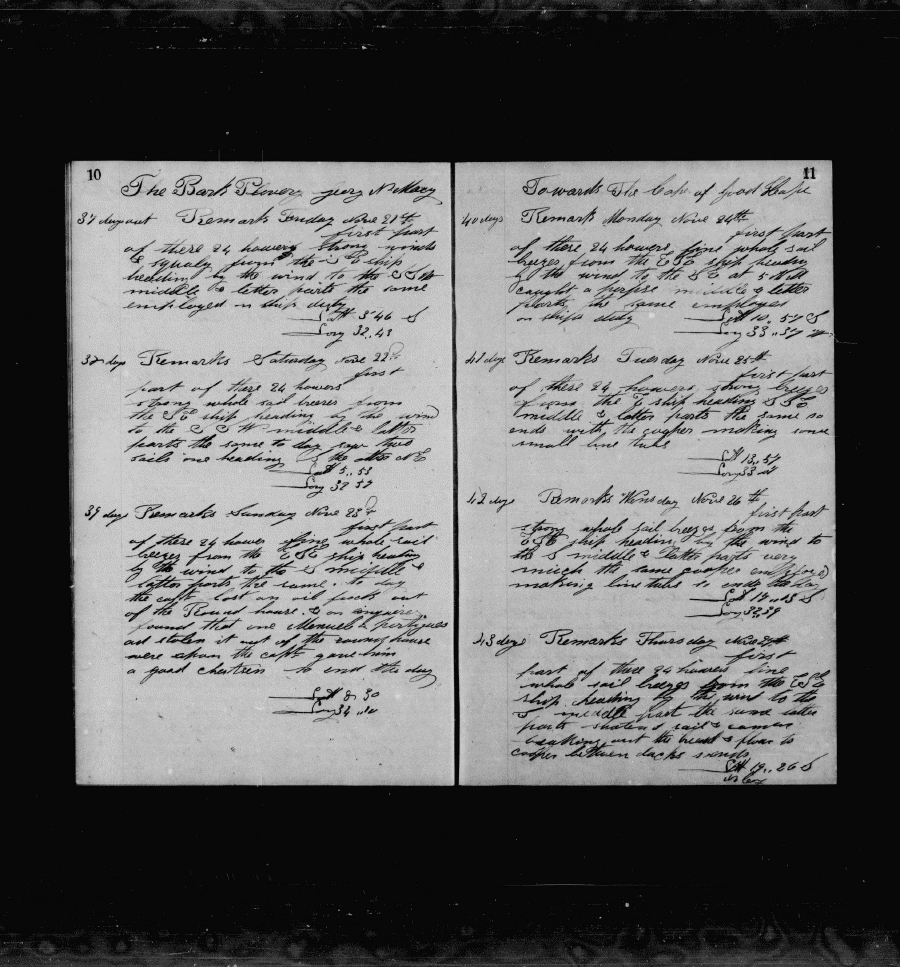 10
The Bark
37 days out Remarks Friday Nove 21st
first part
of these 24 howers strong winds
& squaly from the SE ship
heading by the wind to the SSW
middle & latter parts the same
employed in ship duty
Latt 3"46 S
Long 32.43
38 days Remarks Saturday Nove 22d
first
part of these 24 howers
strong whole sail breeze from
the SE ship heading by the wind
to the SSW middle & latter
parts the same to day saw two
sails one heading S the other NE
Latt 5"53
Long 32 57
39 days Remarks Sunday Nove 23d
first part
of these 24 howers fine whole sail
breeze from the ESE ship heading
by the wind to the S middle &
latter parts the same to day
the capt lost an oil out
of the Round house & on
found that one Manuel a
ad stolen it out of the round house
the capt gave him
a good to end the day
Latt 8 30
Long 34
11
Towards The Cape of good Hope
40 days Remarks Monday Nove 24th
first part
of these 24 howers fine whole sail
breeze from the ESE ship heading
by the wind to the S at 5
caught a porpse middle & latter
parts the same employed
on ships duty
Latt 10.57 S
Long 33 37 W
41 days Remarks Tuesday Nove 25th
first part
of these 24 howers strong breeze
from the E ship heading SSE
middle & latter parts the same so
ends with the cooper making some
small line tubs
Latt 13.57
Long 33
42 days Remarks Wensday Nove 26th
first part
strong whole sail breeze from the
ESE ship heading by the wind to
the S middle & latter parts very
much the same cooper employed
making line tubs so ends the day
Latt 17"13 S
Long 32"39
43 days Remarks Thursday Nove 27th
first
part of these 24 howers fine
whole sail breeze from the ESE
ship heading by the wind to the
S middle part the same latter
part sail &
breaking out the bread & flour to
cooper between dacks so ends
Latt 19"26 S
no Long